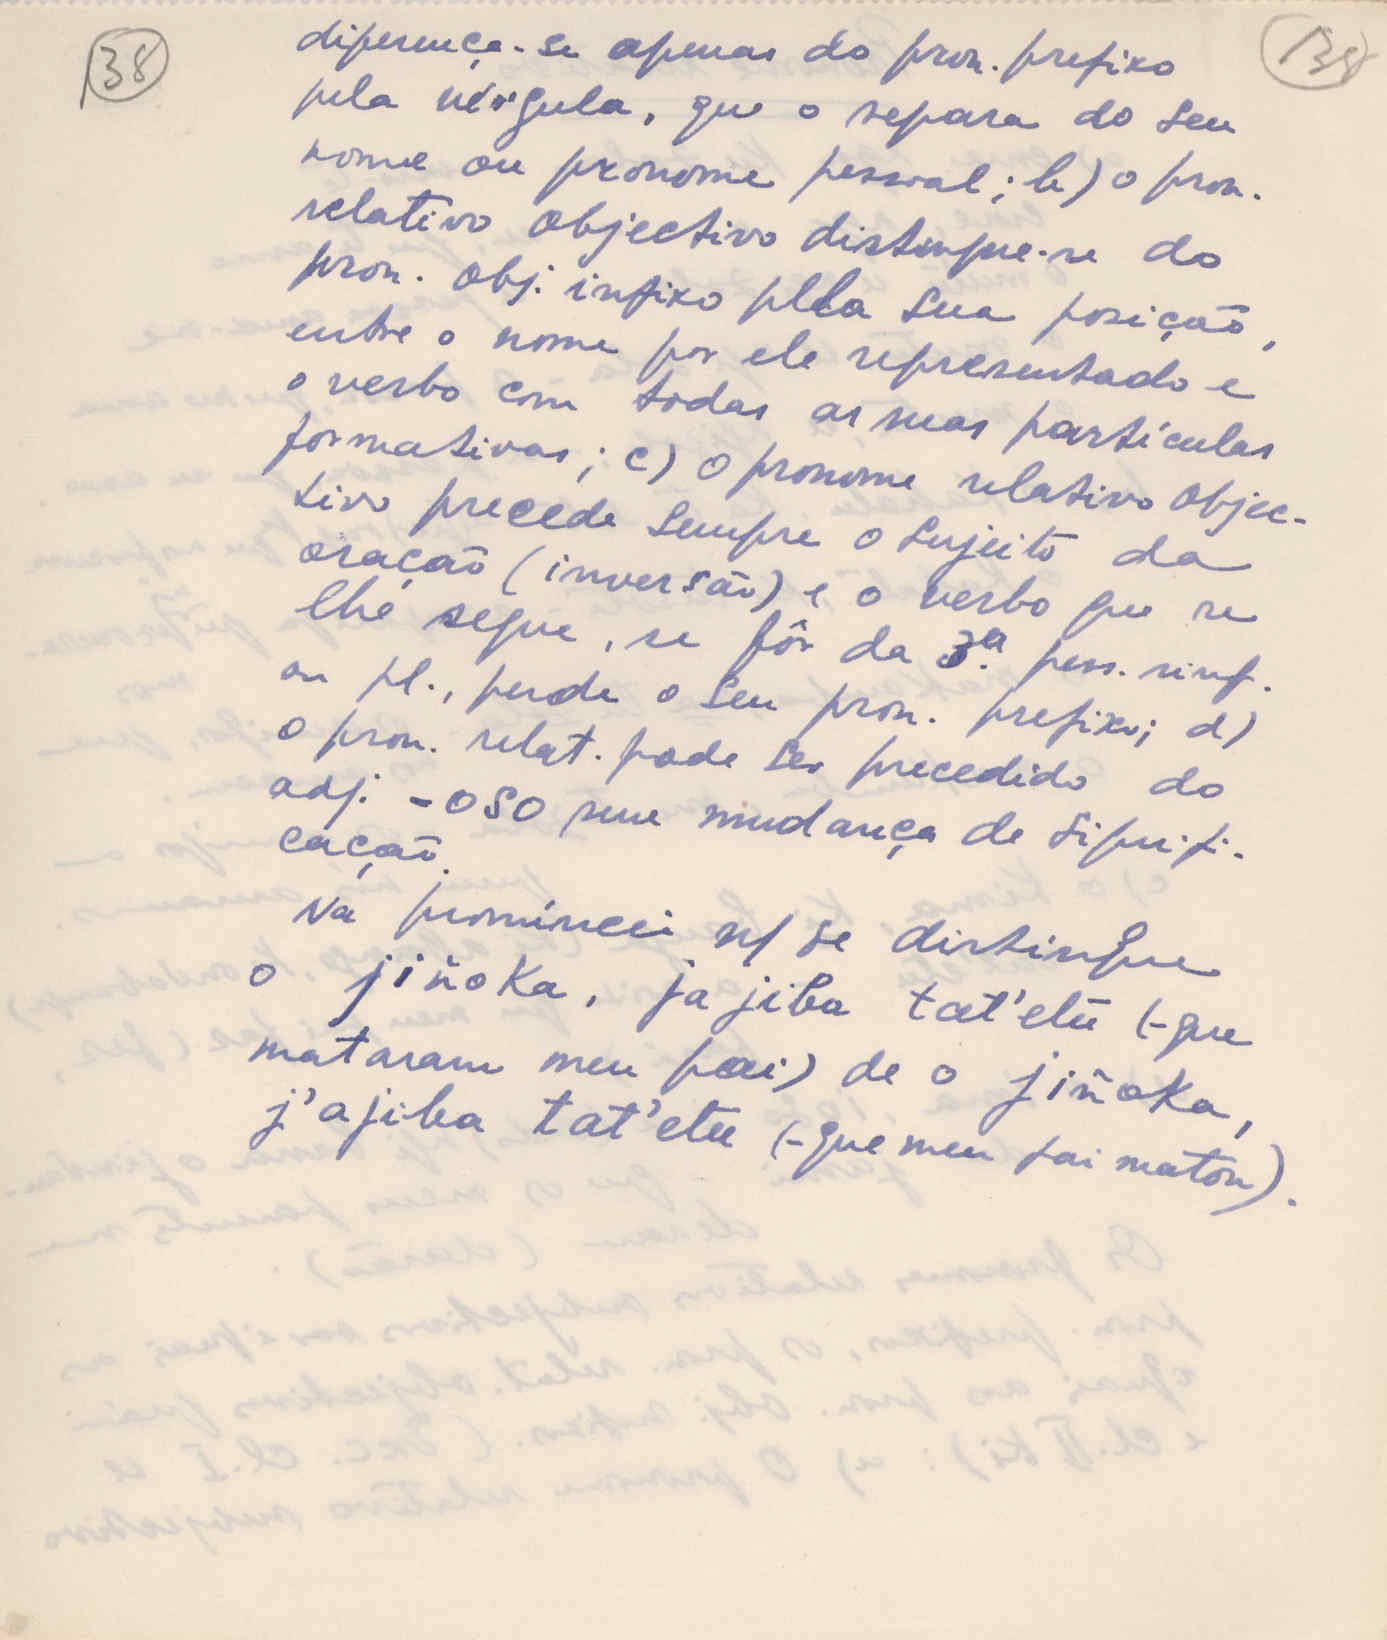 138 138
diferença-se apenas do pron. prefixo
pela vírgula, que o separa do seu
nome ou pronome pessoal; b) o pron.
relativo objectivo distingue-se do
pron. obj. infixo pela sua posição,
entre o nome por ele representado e
o verbo com todas as suas partículas
formativas; c) o pronome relativo objec-
tivo precede sempre o sujeito da
oração (inversão) e o verbo que se
lhe segue, se fôr da 3.ª pess. sing.
ou pl., perde o seu pron. prefixo; d)
o pron. relat. pode ser precedido do
adj. -oso sem mudança de signifi-
cação.
Na pronúncia se distingue
o jiñoka, ja jiba tat'etu (-que
mataram meu pai) de o jiñoka,
j'ajiba tat'etu (-que meu pai matou).